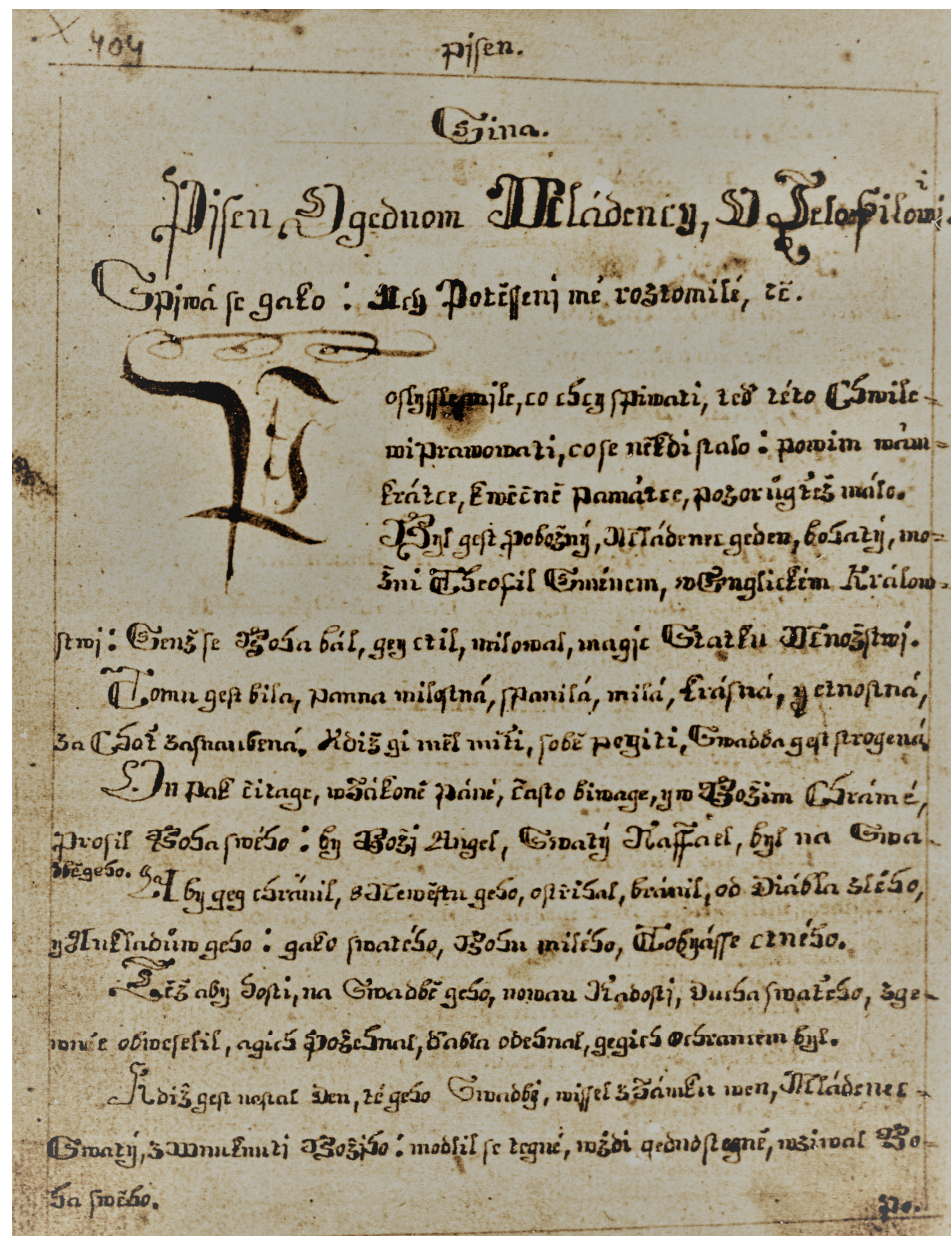 404
Pjsen.
Gina.
Pjsen, O gednom Mládency, O Teloffilowi.
Spiwá se gako : Ach Potěssenj mé roztomilé, tč.
Poslysste mile, co chcy spiwati, teď této Chwile
wiprawowati, co se někdi stalo : powim wám
krátce, k wěčně památce, pozor ůgtež málo.
Byl gest pobožný, Mládenec geden, bohatý, mo-
žni Theofil Gménem, w Englickém Králow-
stwj : Genž se Boha bál, gey ctil, milowal, magic Statku Množstwj.
Tomu gest bila, panna milostná, spanilá, milá, krásná, y ctnostná,
za Choť zasnaubená. Kdiž gi měl míti, sobě pogiti, Swadba gest strogená.
On pak čitage, w Zákoně páně, často biwage, y w Božim Chrámě,
prosil Boha swého : by Boži Angel, Swatý Raffael, byl na Swa-
dbě geho.
Aby geg chránil, s Newěstu geho, ostřihal, bránil, od Diábla zlého,
y Aukladůw geho : gako swatého, Bohu milého, Tobyásse ctného.
Též aby hosti, na Swadbě geho, nowau Radosti, Ducha swatého, zge-
wně obweselil, a gich požehnal, ďabla odehnal, gegich Ochrancem byl.
Kdiž gest nestal Den, té geho Swadbi, wissel z Zámku wen, Mládenec
Swatý, z Wnuknuti Božjho : modlil se tegně, wždi gednostegně, wziwal Bo-
ha swého.
Po.